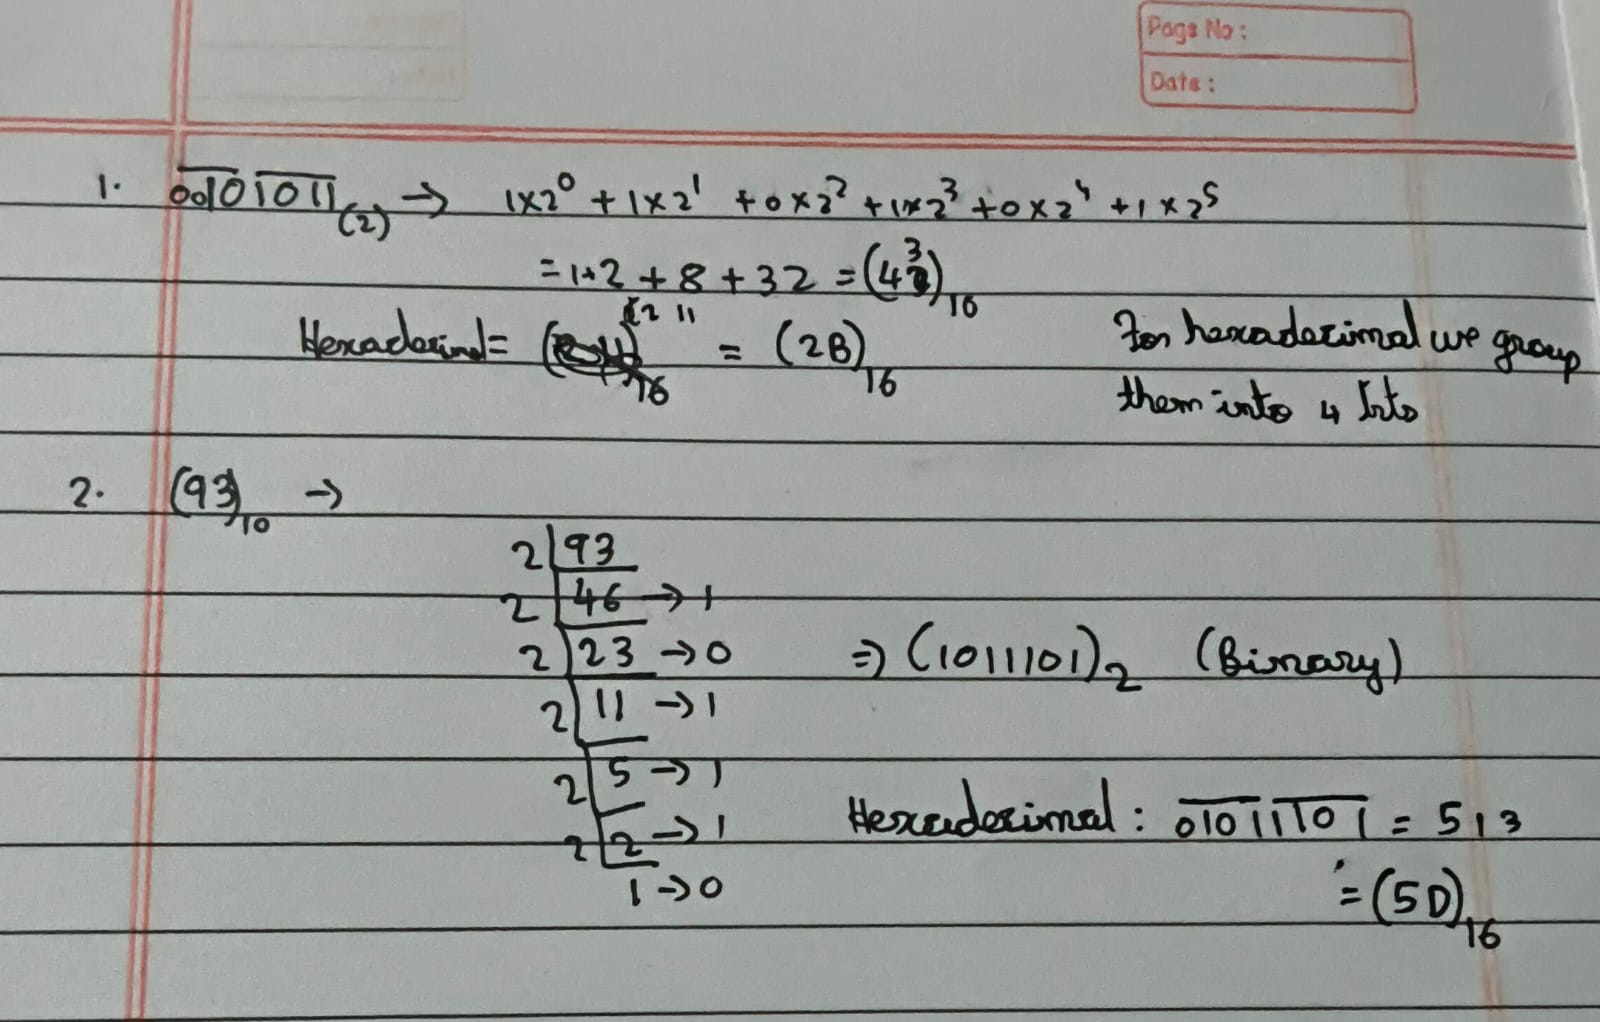 Page No :
Date :
1. 00101011(2) → 1×2⁰ + 1×2¹ + 0×2² + 1×2³ + 0×2⁴ + 1×2⁵
= 1+2 + 8 + 32 = (43)₁₀
2 11
Hexadecimal = ₁₆ = (2B)₁₆ For hexadecimal we group
them into 4 bits
2. (93)₁₀ →
2 | 93
2 | 46 → 1
2 | 23 → 0 ⇒ (1011101)₂ (Binary)
2 | 11 → 1
2 | 5 → 1
2 | 2 → 1 Hexadecimal : 01011101 = 5 13
1 → 0
= (5D)₁₆